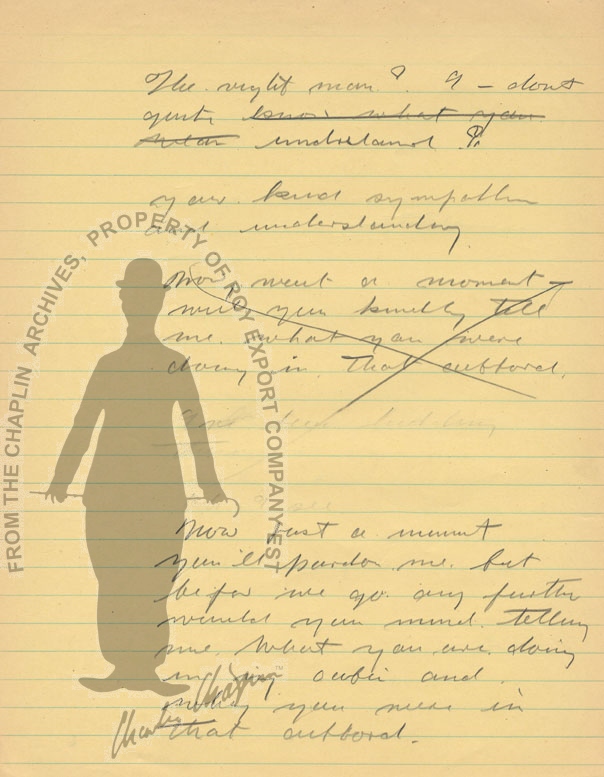 The right man? I - dont
quite know what you
mean understand ?
your kind sympathy
and understanding.
Now, went a moment
will you kindly tell
me. what you were
doing in that cubbord.
Now just a minuet
you'll pardon me. but
before we go any further
would you mind. telling
me. What you are. doing
in my cabin and
why you were in
that cubbord.
FROM THE CHAPLIN ARCHIVES, PROPERTY OF ROY EXPORT COMPANY EST
Charlie Chaplin